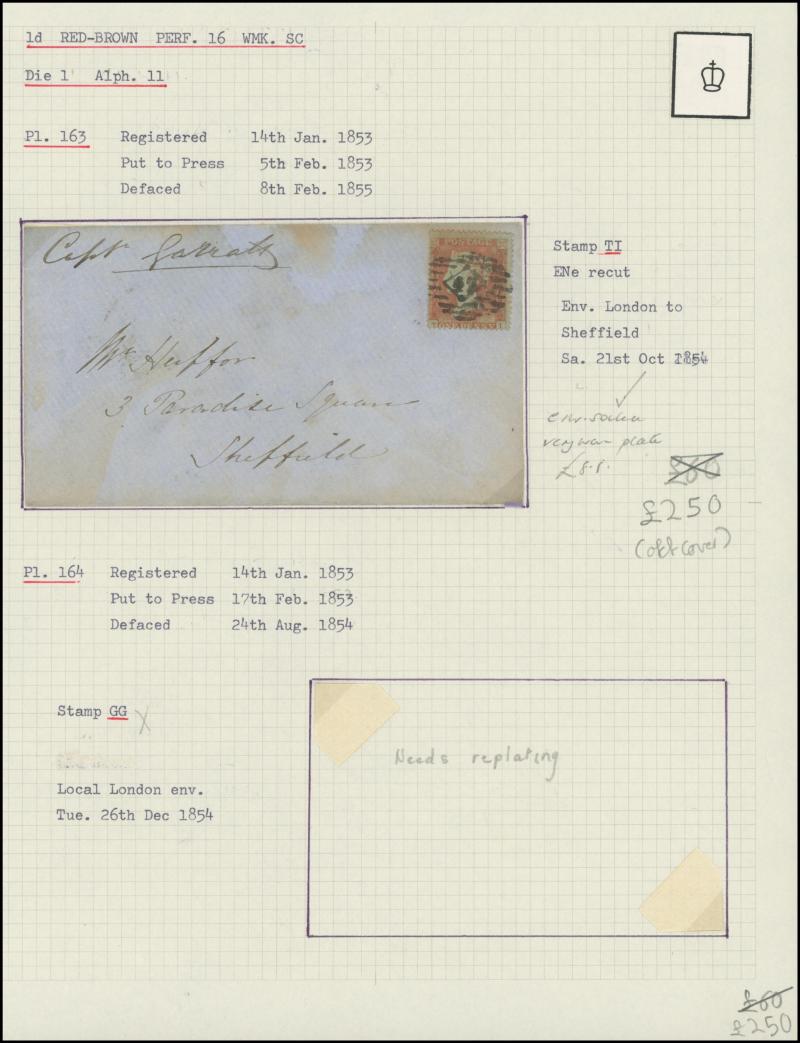 1d RED-BROWN PERF. 16 WMK. SC
Die 1 Alph. 11
Pl. 163 Registered 14th Jan. 1853
Put to Press 5th Feb. 1853
Defaced 8th Feb. 1855
Capt Garratt
POSTAGE
ONE PENNY
Mr
3 Paradise Square
Sheffield
Stamp TI
ENe recut
Env. London to
Sheffield
Sa. 21st Oct 1854
very worn plate
£60
£250
(off cover)
Pl. 164 Registered 14th Jan. 1853
Put to Press 17th Feb. 1853
Defaced 24th Aug. 1854
Stamp GG X
Local London env.
Tue. 26th Dec 1854
Needs replating
£60
£250